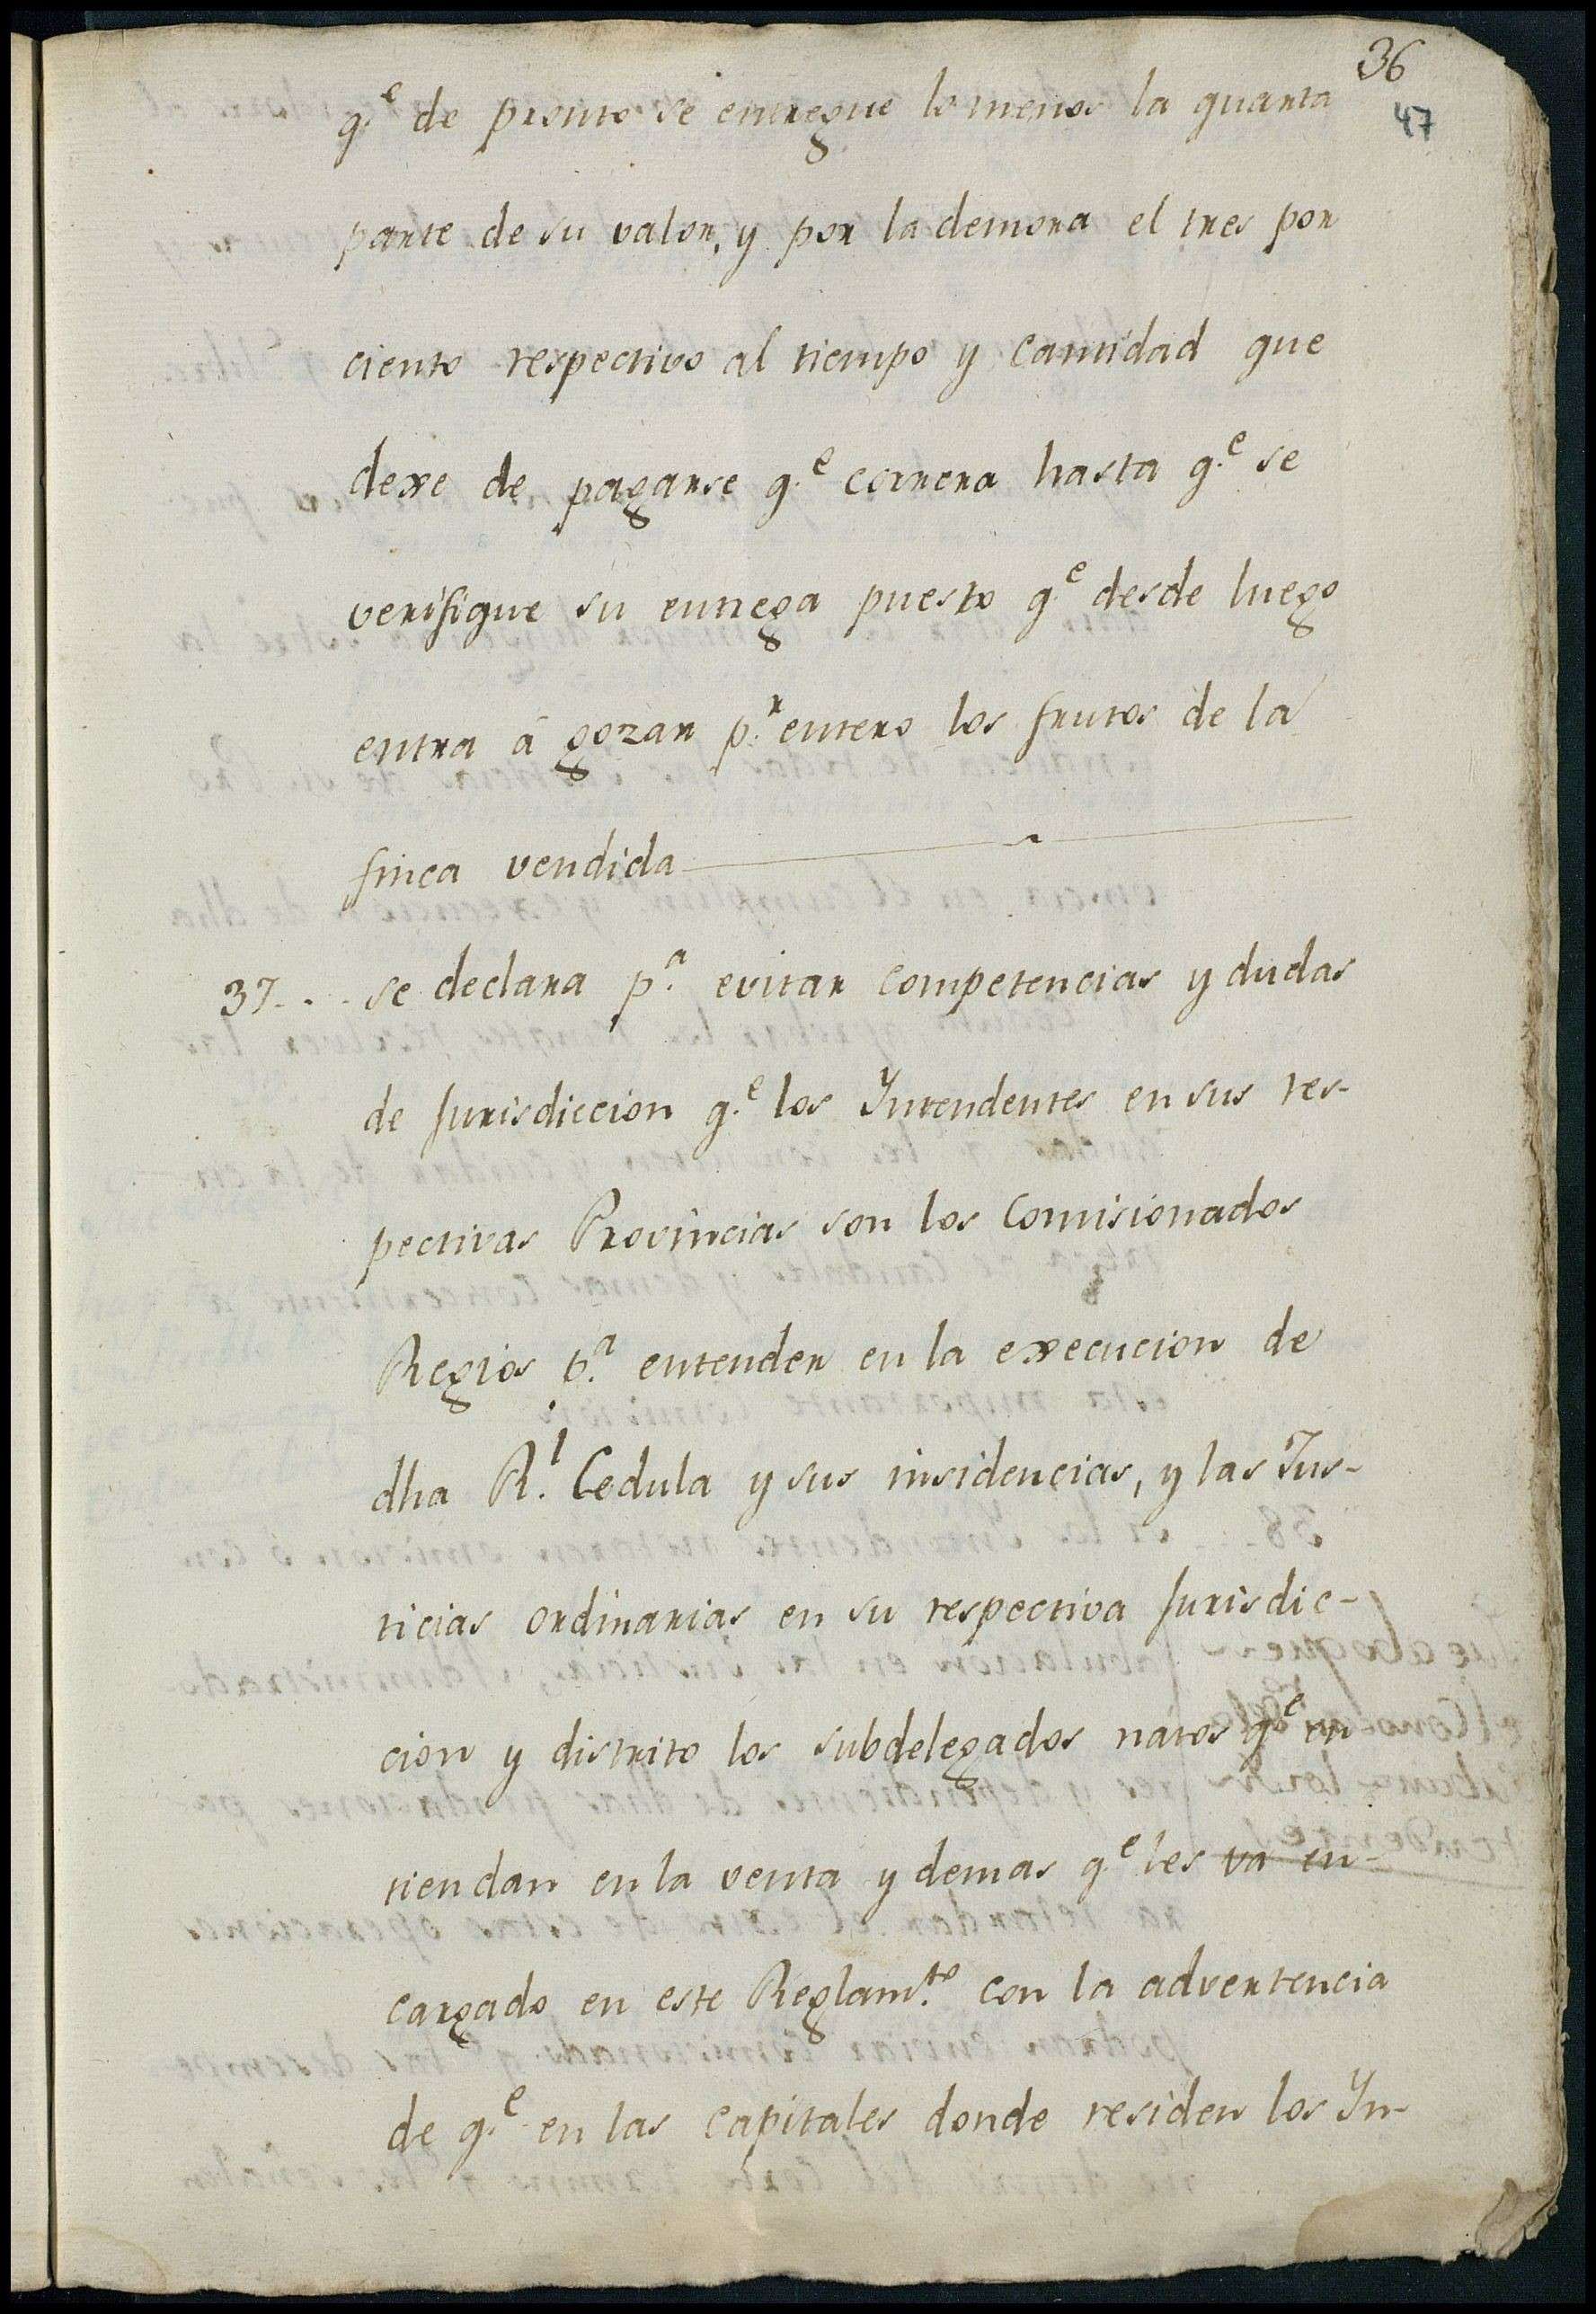 36
47
q.e de pronto se entregue lo menos la quarta
parte de su valor, y por la demora el tres por
ciento respectivo al tiempo y cantidad que
dexe de pagarse q.e correra hasta q.e se
verifique su entrega puesto q.e desde luego
entra á gozar p.r entero los frutos de la
finca vendida
37... se declara p.a evitar competencias y dudas
de Jurisdiccion q.e los Yntendentes en sus res-
pectivas Provincias son los Comisionados
Regios p.a entender en la execucion de
dha R.l Cedula y sus insidencias, y las Jus-
ticias ordinarias en su respectiva Jurisdic-
cion y distrito los subdelegados natos q.e en
tiendan en la venta y demas q.e les va en-
cargado en este Reglam.to con la advertencia
de q.e en las Capitales donde residen los Yn-